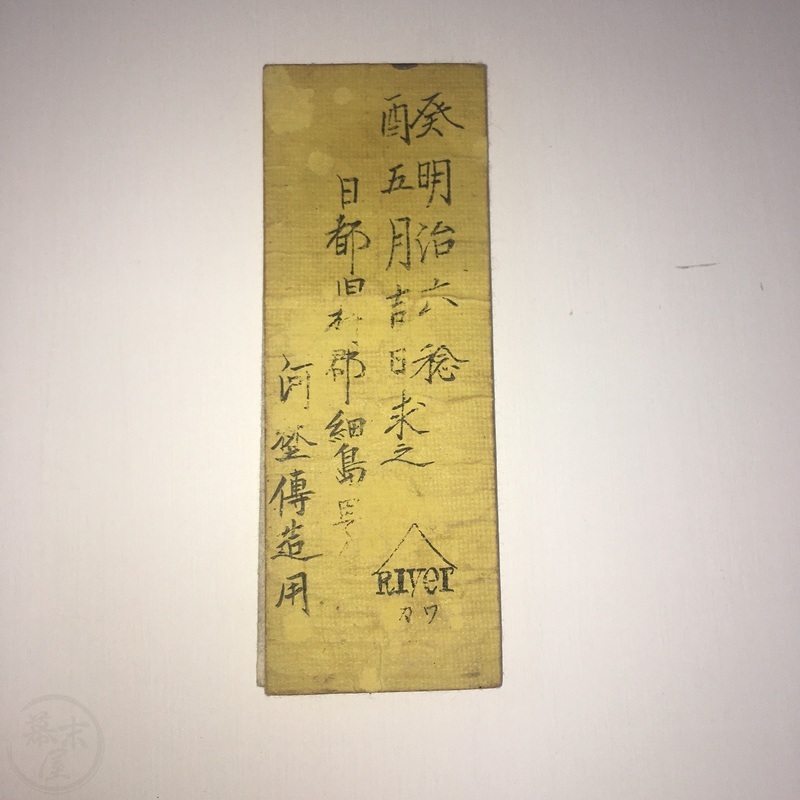 癸明治六稔
酉五月吉日求之
日都臼杵郡細島
河埜傳造用
River
カワ
幕末屋